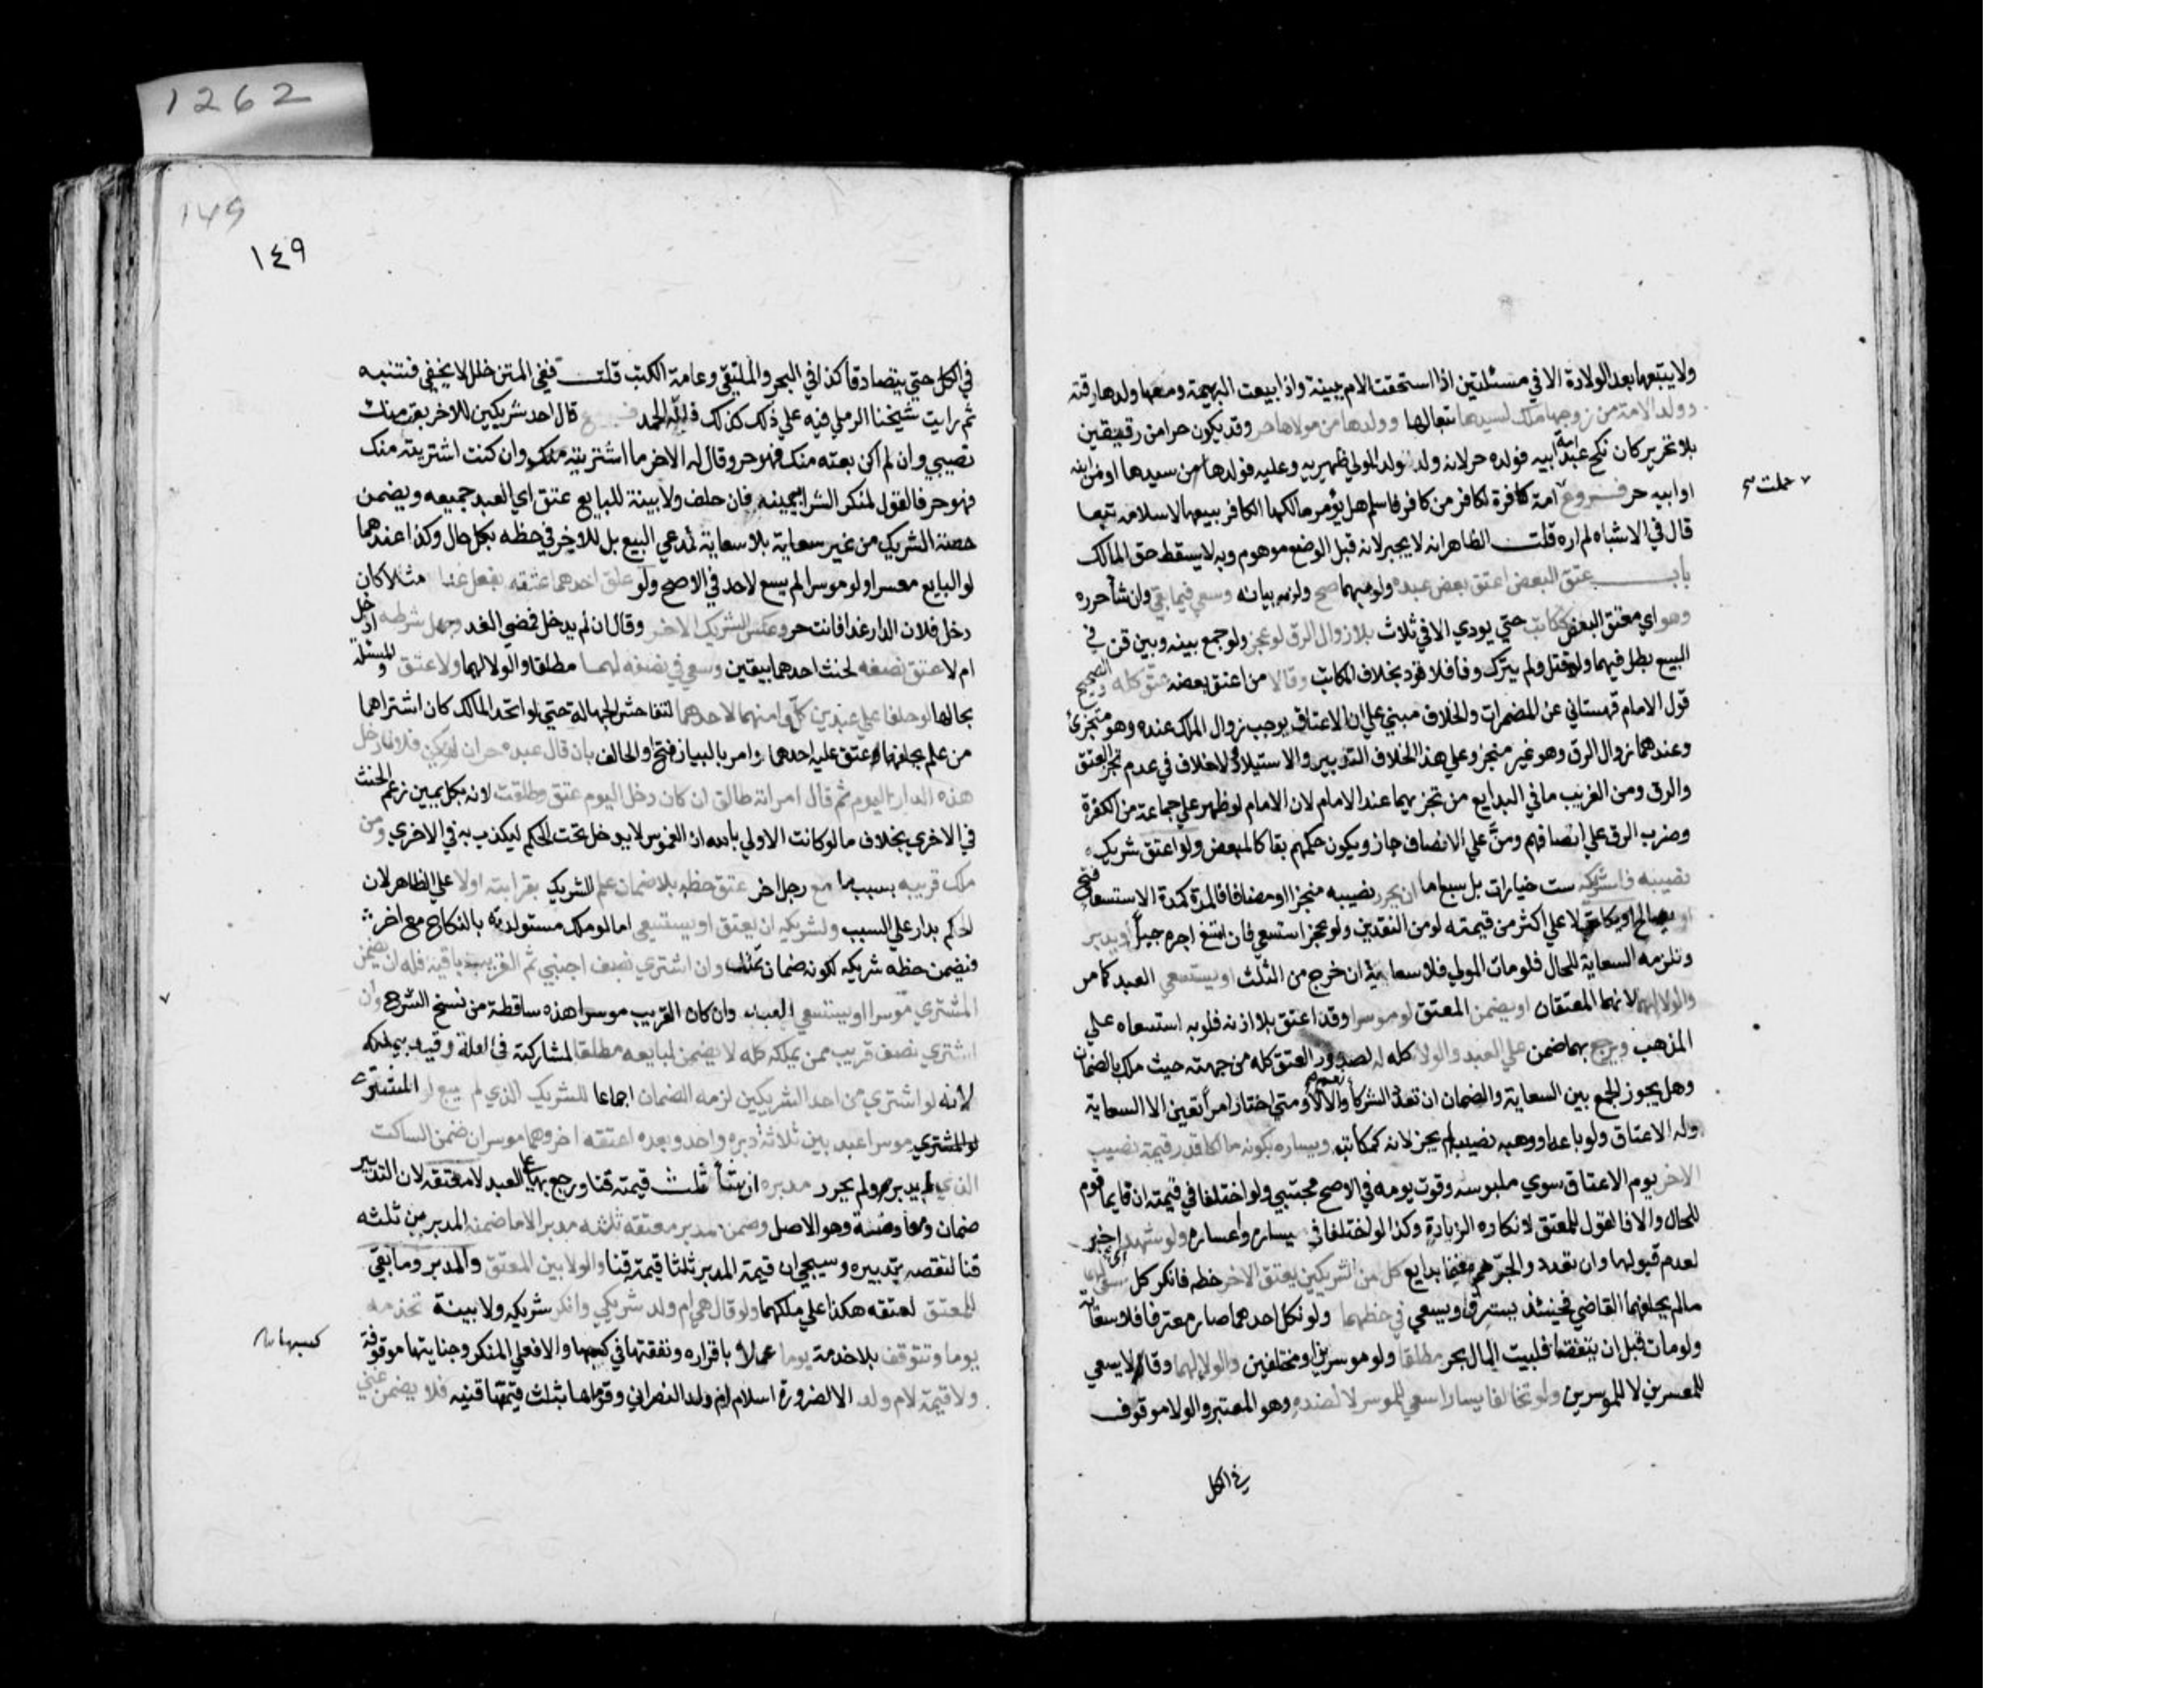 ولا يتبعها بعد الولادة الا في مسئلتين اذا استحقت الام ببينة واذا بيعت البهيمة ومعها ولدها وقته
وولد الامة من زوجها ملك لسيدها تبعا لها وولدها من مولاها حر وقد يكون حرا من رقيقين
بلا تحرير كان نكح عبد امة ابيه فولده حر لانه ولد ولد المولي ظهيرية وعليه فولدها من سيدها او من ابنه
او ابيه حر فروع امة كافرة لكافر من كافر فاسلم هل يؤمر مالكها الكافر ببيعها لاسلامه تبعا
قال في الاشباه لم اره قلت الظاهر انه لا يجبر لانه قبل الوضع موهوم وبه لا يسقط حق المالك
باب عتق البعض اعتق بعض عبده ولو مبهما صح ولزمه بيانه وسعي فيما بقي وان شا حرره
وهو اي معتق البعض كمكاتب حتي يودي الا في ثلاث بلا زوال الرق لو عجز ولو جمع بينه وبين قن في
البيع بطل فيهما ولو قتل ولم يترك وفا فلا قود بخلاف المكاتب وقالا من اعتق بعضه عتق كله والصحيح
قول الامام قهستاني عن المضمرات والخلاف مبني علي ان الاعتاق يوجب زوال الملك عنده وهو متجزئ
وعندهما زوال الرق وهو غير متجز وعلي هذا الخلاف التدبير والاستيلاد ولا خلاف في عدم تجز العتق
والرق ومن الغريب ما في البدايع من تجزيهما عند الامام لان الامام لو ظهر علي جماعة من الكفرة
وضرب الرق علي انصافهم ومنّ علي الانصاف جاز ويكون حكمهم بقا كالمبعض ولو اعتق شريك
نصيبه فلشريكه ست خيارات بل سبع اما ان يحرر نصيبه منجزا او مضافا فالمدة كمدة الاستسعا فتح
او يصالح او يكاتب لا علي اكثر من قيمته لو من النقدين ولو عجز استسعي فان امتنع اجره جبراً او يدبر
وتلزمه السعاية للحال فلو مات المولي فلا سعاية ان خرج من الثلث او يستسعي العبد كما مر
والولا لهما لانهما المعتقان او يضمن المعتق لو موسرا وقد اعتق بلا اذنه فلو به استسعاه علي
المذهب ويرجع بما ضمن علي العبد والولا كله له لصدور العتق كله من جهته حيث ملك بالضمان
وهل يجوز الجمع بين السعاية والضمان ان تعدد الشركأ نعم والا لا ومتي اختار امراً تعين الا السعاية
وله الاعتاق ولو باعه او وهبه نصيبه لم يجز لانه كمكاتب ويساره بكونه مالكا قدر قيمة نصيب
الاخر يوم الاعتاق سوي ملبوسه وقوت يومه في الاصح مجتبي ولو اختلفا في قيمته ان قايما قوم
للحال والا فالقول للمعتق لانكاره الزيادة وكذا لو اختلفا في يساره واعساره ولو شهد اي اخبر
لعدم قبولها وان تعدد والجرهم مغنما بدايع كل من الشريكين بعتق الاخر حظه فانكر كل سعي لهما
ما لم يحلفهما القاضي فحينئذ يسترق ويسعي في حظهما ولو نكل احدهما صار معترفا فلا سعاية
ولو مات قبل ان يتفقا فلبيت المال بحر مطلقا ولو موسرين او مختلفين والولا لهما وقالا يسعي
للمعسرين لا للموسرين ولو تخالفا يسارا سعي للموسر لا لضده وهو المعتبر والولا موقوف
في الكل
1262
149
١٤٩
في الكل حتي يتصادقا كذا في البحر والملتقي وعامة الكتب قلت ففي المتن خلل لا يخفي فتنبه
ثم رايت شيخنا الرملي فيه علي ذلك كذلك فلله الحمد فرع قال احد شريكين للاخر بعت منك
نصيبي وان لم اكن بعته منك فهو حر وقال له الاخر ما اشتريته منك وان كنت اشتريته منك
فهو حر فالقول لمنكر الشرا بيمينه فان حلف ولا بينة للبايع عتق اي العبد جميعه ويضمن
حصة الشريك من غير سعاية بلا سعاية لمدعي البيع بل للاخر في حظه بكل حال وكذا عندهما
لو البايع معسرا ولو موسرا لم يسع لاحد في الاصح ولو علق احدهما عتقه بفعل غدا مثلا كان
دخل فلان الدار غدا فانت حر وعكس الشريك الاخر وقال ان لم يدخل فمضي الغد وجهل شرطه ادخل
ام لا عتق نصفه لحنث احدهما بيقين وسعي في نصفه لهما مطلقا والولا لهما ولا عتق والمسئلة
بحالها لو حلفا علي عبدين كل واحد منهما لاحدهما لتفاحش الجهالة حتي لو اتحد المالك كان اشتراهما
من علم بحلفهما عتق عليه احدهما وامر بالبيان فتح والحالف بان قال عبده حر ان لم يكن فلان دخل
هذه الدار اليوم ثم قال امراته طالق ان كان دخل اليوم عتق وطلقت لانه بكل يمين زعم الحنث
في الاخري بخلاف ما لو كانت الاولي بالله اذ الغموس لا يدخل تحت الحكم ليكذب به في الاخري ومن
ملك قريبه بسبب ما مع رجل اخر عتق حظه بلا ضمان علم الشريك بقرابته اولا علي الظاهر لان
الحكم يدار علي السبب ولشريكه ان يعتق او يستسعي اما لو ملك مستولدته بالنكاح مع اخر
فيضمن حظه شريكه لكونه ضمان تملك وان اشتري نصف اجنبي ثم القريب باقيه فله ان يضمن
المشتري موسرا او يستسعي العبد وان كان القريب موسرا هذه ساقطة من نسخ الشرح وان
اشتري نصف قريبه ممن يملكه كله لا يضمن لبايعه مطلقا لمشاركته في العلة وقيد بمن يملكه
لانه لو اشتري من احد الشريكين لزمه الضمان اجماعا للشريك الذي لم يبع لو المشتري
لو المشتري موسرا عبد بين ثلاثة دبره واحد وبعده اعتقه اخر وهما موسران ضمن الساكت
الذي لم يدبر ولم يحرر مدبره ان شأ ثلث قيمته قنا ورجع بها علي العبد لا معتقه لان التدبير
ضمان معاوضة وهو الاصل وضمن مدبر معتقه ثلثه مدبرا لا ما ضمنه المدبر من ثلثه
قنا لنقصه بتدبيره وسيجي ان قيمة المدبر ثلثا قيمته قنا والولا بين المعتق والمدبر وما بقي
للمعتق لعتقه هكذا علي ملكهما ولو قال هي ام ولد شريكي وانكر شريكه ولا بينة تخدمه
يوما وتتوقف بلا خدمة يوما عملا باقراره ونفقتها في كسبها والا فعلي المنكر وجنايتها موقوفة
ولا قيمة لام ولد الا لضرورة اسلام ام ولد النصراني وقوماها بثلث قيمتها قنية فلا يضمن غني